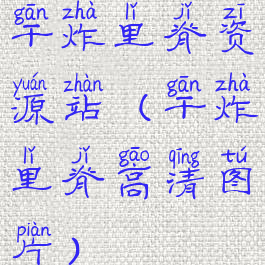 gān zhà lǐ jǐ zī
干炸里脊资
yuán zhàn gān zhà
源站(干炸
lǐ jǐ gāo qīng tú
里脊高清图
piàn
片)